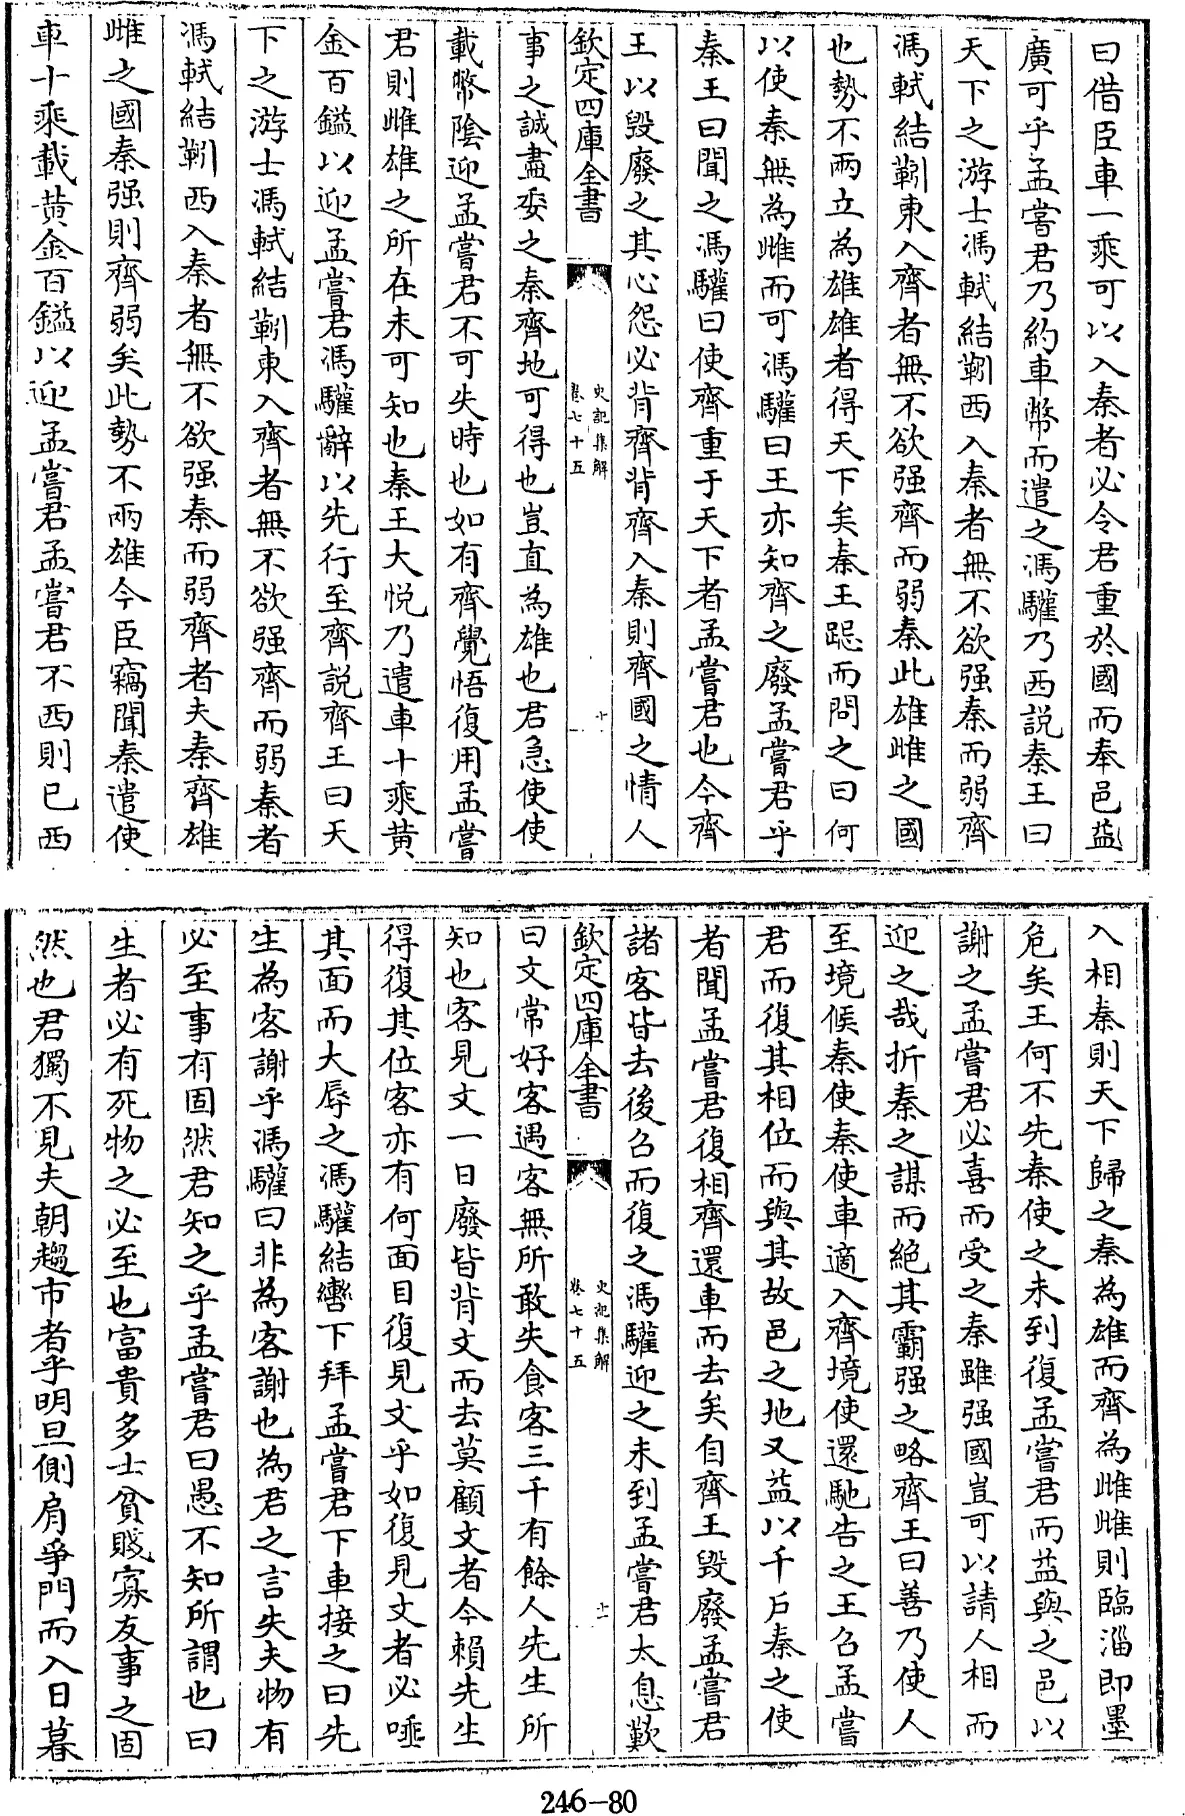 曰借臣車一乘可以入秦者必令君重於國而奉邑益
廣可乎孟嘗君乃約車幣而遣之馮驩乃西説秦王曰
天下之游士馮軾結靷西入秦者無不欲强秦而弱齊
馮軾結靷東入齊者無不欲强齊而弱秦此雄雌之國
也勢不兩立為雄雄者得天下矣秦王跽而問之曰何
以使秦無為雌而可馮驩曰王亦知齊之廢孟嘗君乎
秦王曰聞之馮驩曰使齊重于天下者孟嘗君也今齊
王以毀廢之其心怨必背齊背齊入秦則齊國之情人
欽定四庫全書
史記集解
卷七十五
十
事之誠盡委之秦齊地可得也豈直為雄也君急使使
載幣陰迎孟嘗君不可失時也如有齊覺悟復用孟嘗
君則雌雄之所在未可知也秦王大悦乃遣車十乘黄
金百鎰以迎孟嘗君馮驩辭以先行至齊説齊王曰天
下之游士馮軾結靷東入齊者無不欲强齊而弱秦者
馮軾結靷西入秦者無不欲强秦而弱齊者夫秦齊雄
雌之國秦强則齊弱矣此勢不兩雄今臣竊聞秦遣使
車十乘載黄金百鎰以迎孟嘗君孟嘗君不西則已西
入相秦則天下歸之秦為雄而齊為雌雌則臨淄即墨
危矣王何不先秦使之未到復孟嘗君而益與之邑以
謝之孟嘗君必喜而受之秦雖强國豈可以請人相而
迎之哉折秦之謀而絶其霸强之略齊王曰善乃使人
至境候秦使秦使車適入齊境使還馳告之王召孟嘗
君而復其相位而與其故邑之地又益以千戸秦之使
者聞孟嘗君復相齊還車而去矣自齊王毀廢孟嘗君
諸客皆去後召而復之馮驩迎之未到孟嘗君太息歎
欽定四庫全書
史記集解
卷七十五
十一
曰文常好客遇客無所敢失食客三千有餘人先生所
知也客見文一日廢皆背文而去莫顧文者今賴先生
得復其位客亦有何面目復見文乎如復見文者必唾
其面而大辱之馮驩結轡下拜孟嘗君下車接之曰先
生為客謝乎馮驩曰非為客謝也為君之言失夫物有
必至事有固然君知之乎孟嘗君曰愚不知所謂也曰
生者必有死物之必至也富貴多士貧賤寡友事之固
然也君獨不見夫朝趨市者乎明旦側肩爭門而入日暮
246-80